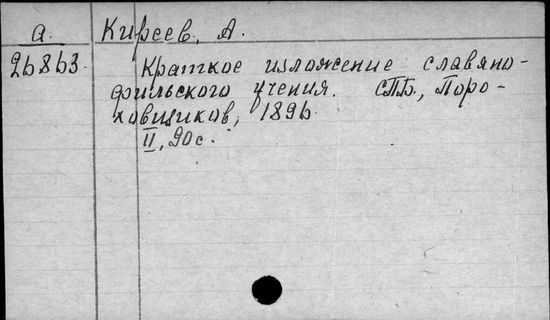 а. Киреев, А.
26863 Краткое изложение славяно-
фильского учения. СПБ., Поро-
ховщиков, 1896
II, 90 с.